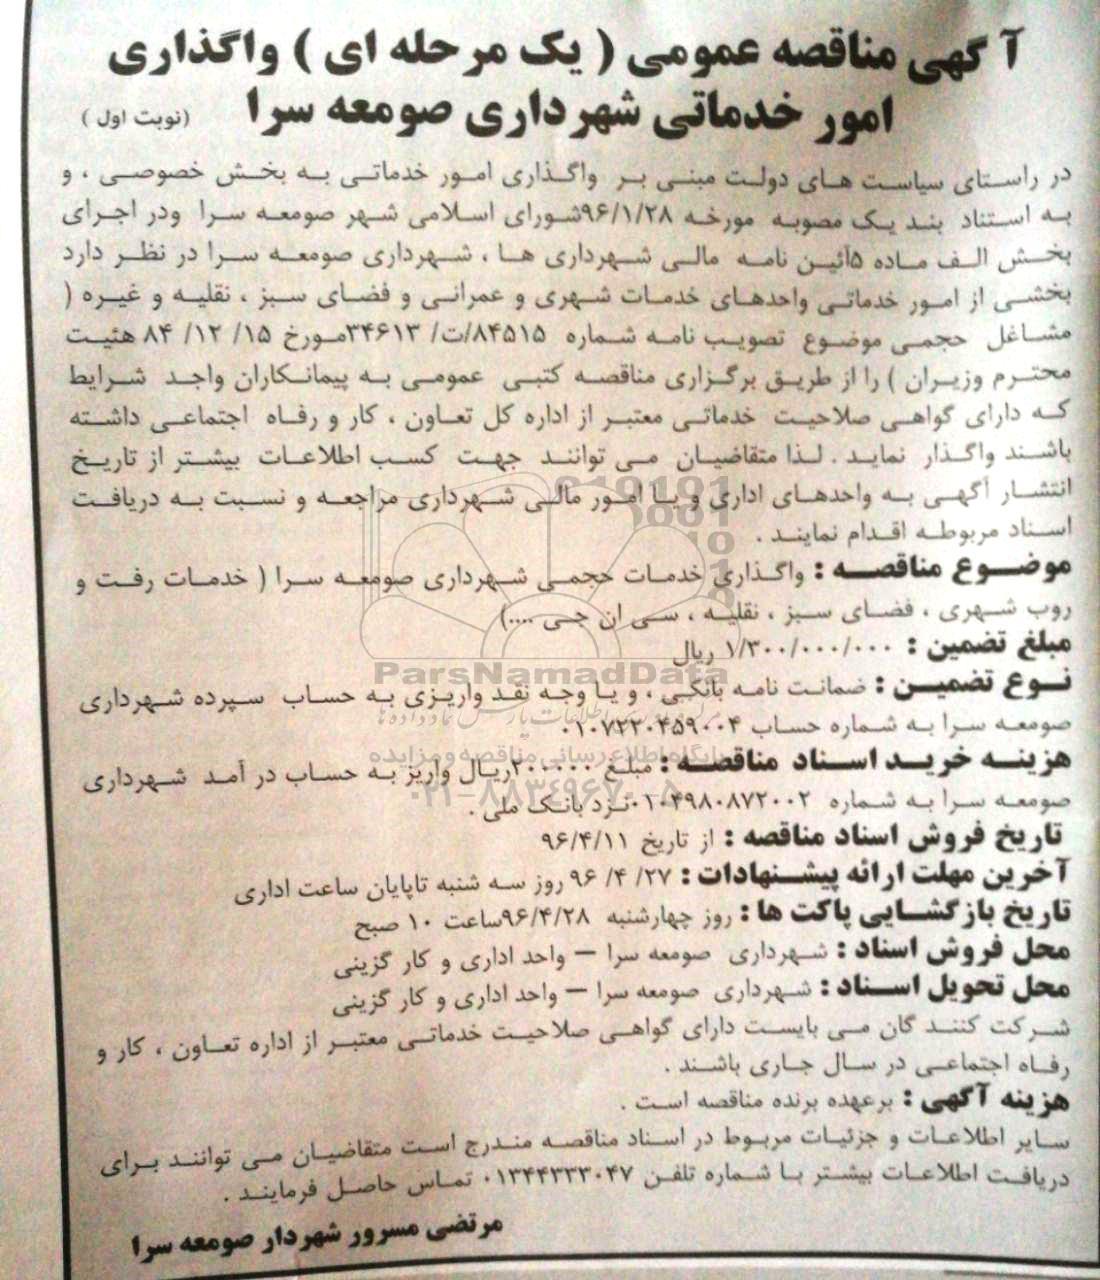 آگهی مناقصه عمومی ( یک مرحله ای ) واگذاری
امور خدماتی شهرداری صومعه سرا (نوبت اول )
در راستای سیاست های دولت مبنی بر واگذاری امور خدماتی به بخش خصوصی ، و
به استناد بند یک مصوبه مورخه ۹۶/۱/۲۸شورای اسلامی شهر صومعه سرا ودر اجرای
بخش الف ماده ۵آئین نامه مالی شهرداری ها ، شهرداری صومعه سرا در نظر دارد
بخشی از امور خدماتی واحدهای خدمات شهری و عمرانی و فضای سبز ، نقلیه و غیره (
مشاغل حجمی موضوع تصویب نامه شماره ۸۴۵۱۵/ت/ ۳۴۶۱۳مورخ ۱۵/ ۱۲/ ۸۴ هئیت
محترم وزیران ) را از طریق برگزاری مناقصه کتبی عمومی به پیمانکاران واجد شرایط
که دارای گواهی صلاحیت خدماتی معتبر از اداره کل تعاون ، کار و رفاه اجتماعی داشته
باشند واگذار نماید . لذا متقاضیان می توانند جهت کسب اطلاعات بیشتر از تاریخ
انتشار آگهی به واحدهای اداری و یا امور مالی شهرداری مراجعه و نسبت به دریافت
اسناد مربوطه اقدام نمایند .
موضوع مناقصه : واگذاری خدمات حجمی شهرداری صومعه سرا ( خدمات رفت و
روب شهری ، فضای سبز ، نقلیه ، سی ان جی ....)
مبلغ تضمین : ۱/۳۰۰/۰۰۰/۰۰۰ ریال
نوع تضمین : ضمانت نامه بانکی ، و یا وجه نقد واریزی به حساب سپرده شهرداری
صومعه سرا به شماره حساب ۰۱۰۷۲۲۰۴۵۹۰۰۴
هزینه خرید اسناد مناقصه : مبلغ ۲۰۰۰۰۰۰ریال واریز به حساب در آمد شهرداری
صومعه سرا به شماره ۰۱۰۴۹۸۰۸۷۲۰۰۲نزد بانک ملی .
تاریخ فروش اسناد مناقصه : از تاریخ ۹۶/۴/۱۱
آخرین مهلت ارائه پیشنهادات : ۲۷/ ۴/ ۹۶ روز سه شنبه تاپایان ساعت اداری
تاریخ بازگشایی پاکت ها : روز چهارشنبه ۹۶/۴/۲۸ساعت ۱۰ صبح
محل فروش اسناد : شهرداری صومعه سرا – واحد اداری و کار گزینی
محل تحویل اسناد : شهرداری صومعه سرا – واحد اداری و کار گزینی
شرکت کنند گان می بایست دارای گواهی صلاحیت خدماتی معتبر از اداره تعاون ، کار و
رفاه اجتماعی در سال جاری باشند .
هزینه آگهی : برعهده برنده مناقصه است .
سایر اطلاعات و جزئیات مربوط در اسناد مناقصه مندرج است متقاضیان می توانند برای
دریافت اطلاعات بیشتر با شماره تلفن ۰۱۳۴۴۳۳۳۰۴۷ تماس حاصل فرمایند .
مرتضی مسرور شهردار صومعه سرا
ParsNamadData
پایگاه اطلاع رسانی مناقصه و مزایده
۰۲۱-۸۸۳۴۹۶۷۰-۵